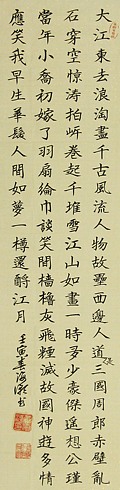 大江東去浪淘盡千古風流人物故壘西邊人道是三國周郎赤壁亂
石穿空驚濤拍岸卷起千堆雪江山如畫一時多少豪傑遙想公瑾
當年小喬初嫁了羽扇綸巾談笑間檣櫓灰飛煙滅故國神遊多情
應笑我早生華髮人間如夢一樽還酹江月
壬寅春海潮書